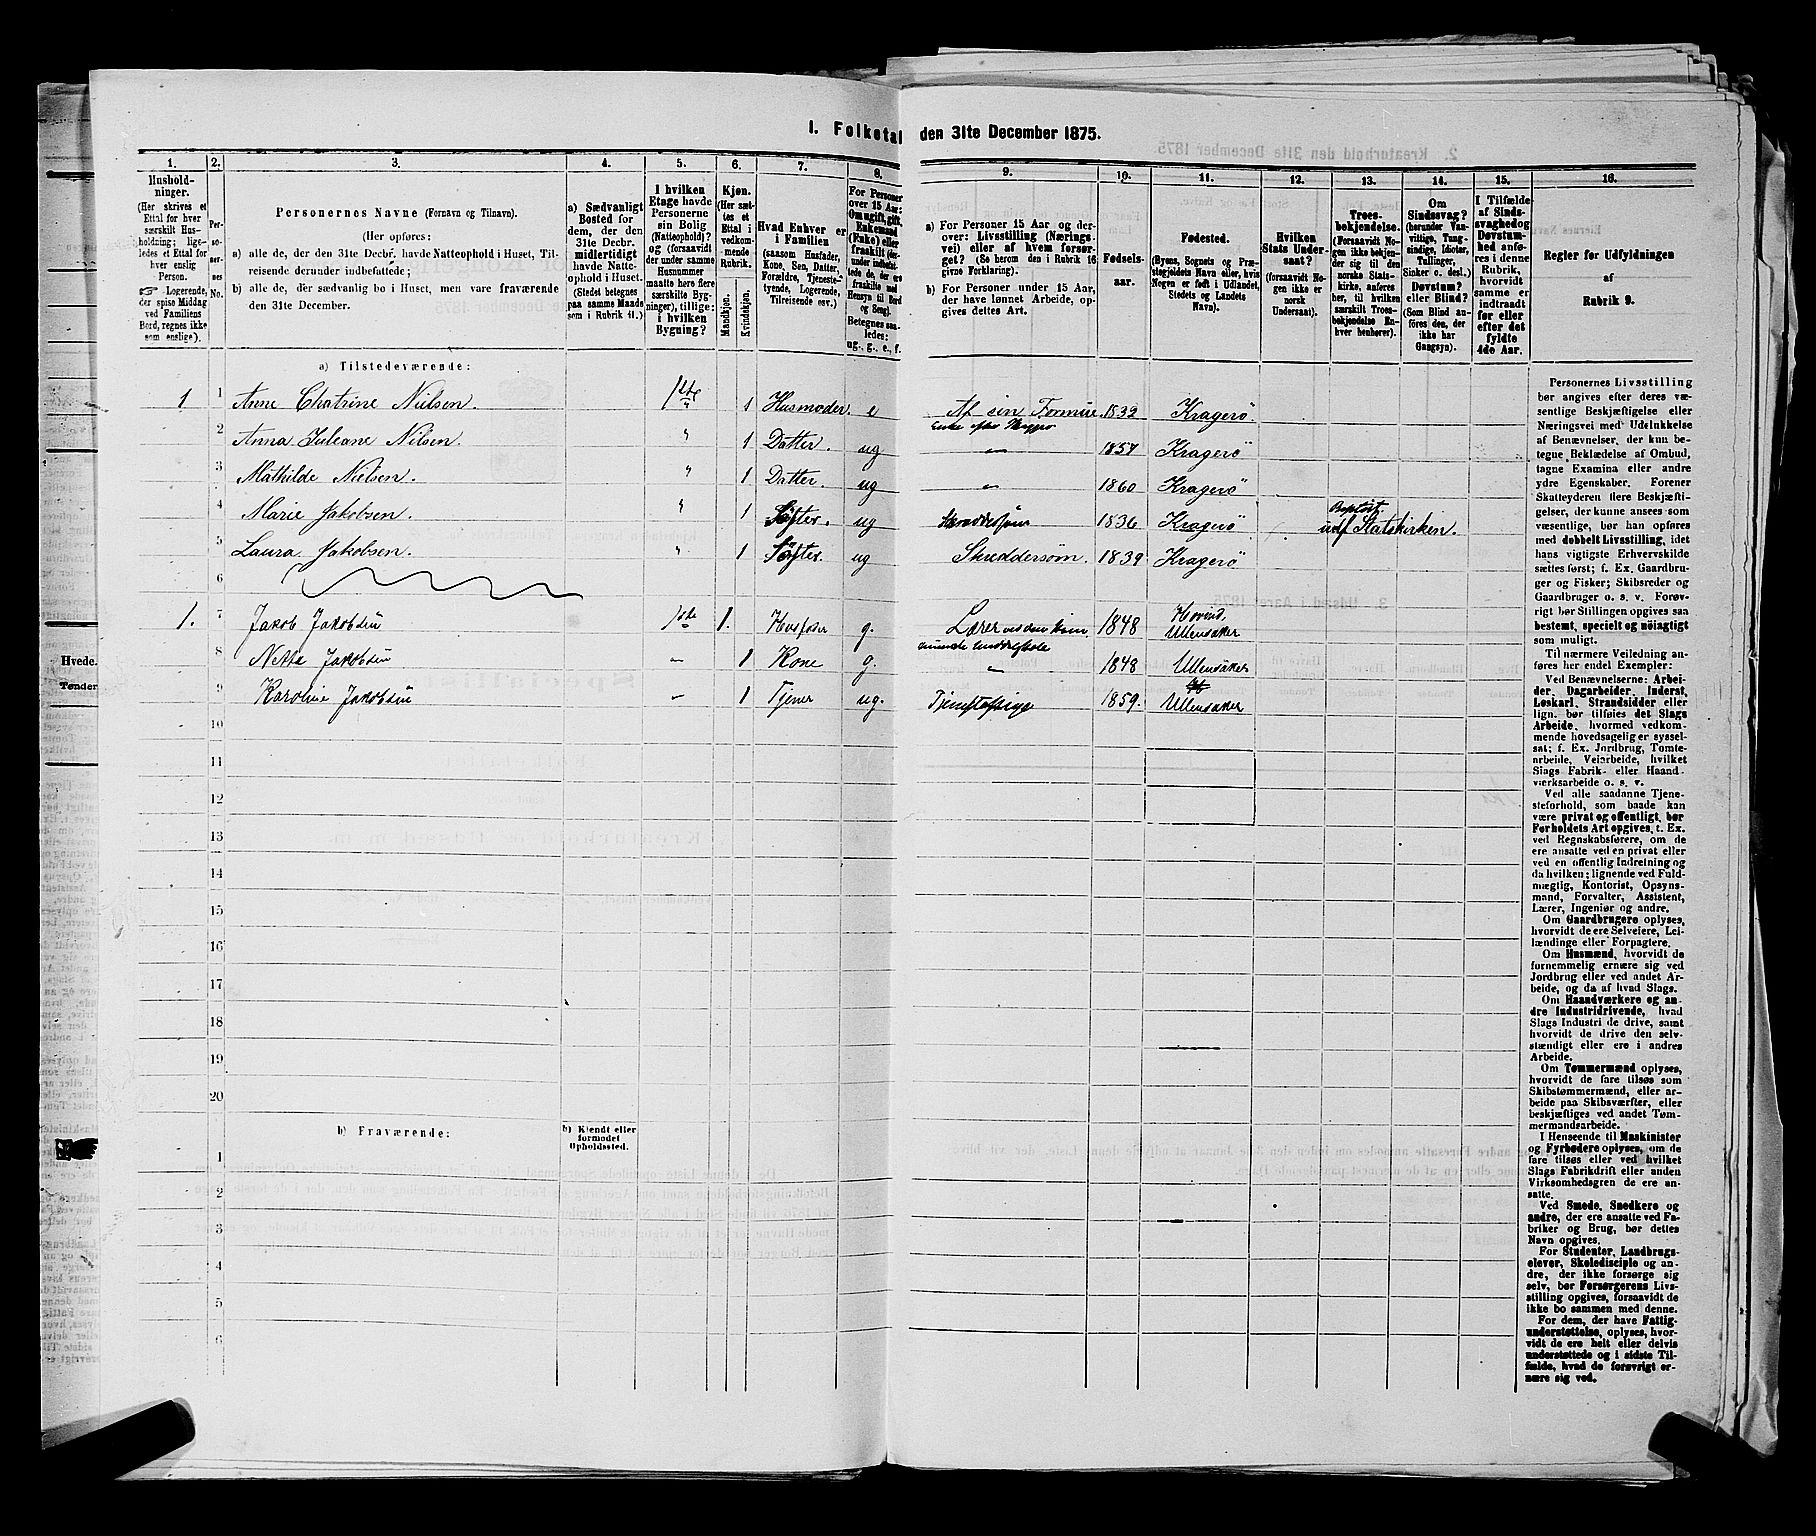 I. Folketal den 31te December 1875.
1.
Hushold-
ninger.
(Her skrives et
Ettal for hver
særskilt Hus-
holdning; lige-
ledes et Ettal for
hver enslig
Person.
Logerende,
der spise Middag
ved Familiens
Bord, regnes ikke
som enslige).
2.
Per-
so-
ner-
nes
No.
3.
Personernes Navne (Fornavn og Tilnavn).
(Her opføres:
a) alle de, der den 31te Decbr. havde Natteophold i Huset, Til-
reisende derunder indbefattede;
b) alle de, der sædvanlig bo i Huset, men vare fraværende
den 31te December.
4.
a) Sædvanligt
Bosted for
dem, der den
31te Decbr.
midlertidigt
havde Natte-
ophold i Huset.
(Stedet betegnes
paa samme Maade
som i Rubrik 11.)
5.
I hvilken
Etage havde
Personerne
sin Bolig
(Natteophold)?
og (forsaavidt
der under samme
Husnummer
maatte høre flere
særskilte Byg-
ninger), tillige:
i hvilken
Bygning?
6.
Kjøn.
(Her sæt-
tes et
Ettal i
vedkom-
mende
Rubrik.
Mandkjøn.
Kvindekjøn.
7.
Hvad Enhver er
i Familien
(saasom Husfader,
Kone, Søn, Datter,
Forældre, Tjeneste-
tyende, Logerende,
Tilreisende osv.)
8.
For Personer
over 15 Aar:
Om ugift, gift,
Enkemand
(Enke) eller
fraskilt
Hensyn til Bord
og Seng).
Betegnes saa-
ledes:
ug., g., e., f.
9.
a) For Personer 15 Aar og der-
over: Livsstilling (Nærings-
vei) eller af hvem forsør-
get? (Se herom den i Rubrik 16
givne Forklaring).
b) For Personer under 15 Aar,
der have lønnet Arbeide, op-
gives dettes Art.
10.
Fødsels-
aar.
11.
Fødested.
(Byens, Sognets og Præ-
stegjeldets Navn eller, hvis
Nogen er født i Udlandet,
Stedets og Landets
Navn).
12.
Hvilken
Stats Under-
saat?
(forsaavidt No-
gen ikke er
norsk
Undersaat).
13.
Troes-
bekjendelse.
(Forsaavidt No-
gen ikke bekjen-
der sig til den
norske Stats-
kirke, anføres
her, til hvilken
særskilt Troes-
bekjendelse En-
hver henhører).
14.
Om
Sindssvag?
(herunder Van-
vittige, Tung-
sindige, Idioter,
Tullinger,
Sinker o. desl.)
Døvstum?
eller Blind?
(Som Blind an-
føres den, der
ikke har
Gangsyn).
15.
I Tilfælde
af Sinds-
svaghed og
Døvstum-
hed anfø-
res i denne
Rubrik,
hvorvidt
samme er
indtraadt
før eller
efter det
fyldte
4de Aar.
16.
Regler for Udfyldningen
af
Rubrik 9.
a) Tilstedeværende:
1 1 Anne Chatrine Nielsen. 1ste " 1 Husmoder e Af sin Formue. 1832 Kragerö
Enke efter Skipper
2 Anna Juleane Nilsen. " 1 Datter. ug " 1857 Kragerö
3 Mathilde Nielsen. " 1 Datter. ug " 1860 Kragerö
4 Marie Jakobsen. " 1 Söster. ug 1836 Kragerö udf Statskirken.
5 Laura Jakobsen. " 1 Söster. ug Skreddersøm. 1839 Kragerö
6
1. 7 Jakob Jakobsen 1ste 1. Husfader g. Lærer 1848 Hovind, Ullensaker
8 Netta Jakobsen " 1 Kone g. " 1848 Ullensaker
9 Karoline Jakobsen " 1 Tjener ug. Tjenestepige 1859. Ullensaker
10
11
12
13
14
15
16
17
18
19
20
b) Fraværende:
b) Kjendt eller
formodet
Opholdssted.
1
2
3
4
5
6
Personernes Livsstilling
bør angives efter deres væ-
sentlige Beskjæftigelse eller
Næringsvei med Udelukkelse
af Benævnelser, der kun be-
tegne Beklædelse af Ombud,
tagne Examina eller andre
ydre Egenskaber. Forener
Skatteyderen flere Beskjæfti-
gelser, der kunne ansees som
væsentlige, bør han opføres
med dobbelt Livsstilling, idet
hans vigtigste Erhvervskilde
sættes først; f. Ex. Gaardbru-
ger og Fisker; Skibsreder og
Gaardbruger o. s. v. Forøv-
rigt bør Stillingen opgives saa
bestemt, specielt og nøiagtigt
som muligt.
Til nærmere Veiledning an-
føres her endel Exempler:
Ved Benævnelserne: Arbei-
der, Dagarbeider, Inderst,
Løskarl, Strandsidder eller
lign. bør tilføies det Slags
Arbeide, hvormed vedkom-
mende hovedsagelig er syssel-
sat; f. Ex. Jordbrug, Tomte-
arbeide, Veiarbeide, hvilket
Slags Fabrik- eller Haand-
værksarbeide o. s. v.
Ved alle saadanne Tjene-
steforhold, som baade kan
være privat og offentligt, bør
Forholdets Art opgives, t. Ex.
ved Regnskabsførere, om de
ere ansatte ved en privat eller
ved en offentlig Indretning og
da hvilken; lignende ved Fuld-
mægtig, Kontorist, Opsyns-
mand, Forvalter, Assistent,
Lærer, Ingeniør og andre.
Om Gaardbrugere oplyses,
hvorvidt de ere Selveiere, Lei-
lændinge eller Forpagtere.
Om Husmænd, hvorvidt de
fornemmelig ernære sig ved
Jordbrug eller ved andet Ar-
beide, og da af hvad Slags.
Om Haandværkere og an-
dre Industridrivende, hvad
Slags Industri de drive, samt
hvorvidt de drive den selv-
stændigt eller ere i andres
Arbeide.
Om Tømmermænd oplyses,
hvorvidt de fare tilsøs som
Skibstømmermænd, eller ar-
beide paa Skibsværfter, eller
beskjæftiges ved andet Tøm-
mermandsarbeide.
I Henseende til Maskinister
og Fyrbødere oplyses, om de
fare tilsøs eller ved hvilket
Slags Fabrikdrift eller anden
Virksomhedsgren de ere an-
satte.
Ved Smede, Snedkere og
andre, der ere ansatte ved Fa-
briker og Brug, bør dettes
Navn opgives.
For Studenter, Landbrugs-
elever, Skoledisciple og an-
dre, der ikke forsørge sig
selv, bør Forsørgerens Livs-
stilling opgives, forsaavidt de
ikke bo sammen med denne.
For dem, der have Fattig-
understøttelse, oplyses, hvor-
vidt de ere helt eller delvis
understøttede og i sidste Til-
fælde, hvad de forøvrigt er-
nære sig ved.
Hvede.
Tønder